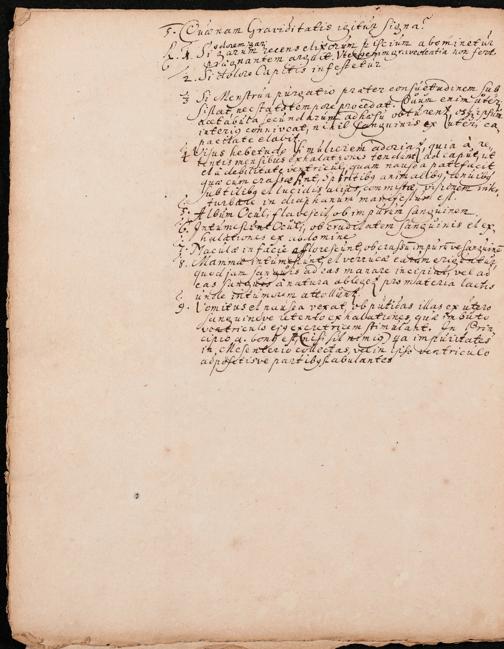 5. Quænam Graviditatis igitur Signa?
1. Si odorem recens elixorum piscium abominetur
prægnantem arguit,
2. Si dolore Capitis infestetur
3 Si Menstrua purgatio præter consuetudinem sub
sistat nec stato tempore procedat. Quum enim uteri
acetabula secundarum adhæsu obturent, os ipsum
interio conniveat, nihil Sanguinis ex utero, ca
pacitate elabi
4 Visus hebetudo si mulierem adoria, quia a re,
tentis mensibus exhalationes tendunt ad caput, ut
et a debilitate ventriculi, quam nausea patefacit
quæ cum crassæ sint, Spiritibq animalibq, tenuibq
subtilibq et lucidis
turbatæ in diaphanum manifestum est.
5. Album Oculi, flavescit, ob impurem sanguinem.
6. Intumescunt Oculi, ob cruditatem sanguinis et ex,
halationes ex abdomine
7. Maculæ in facie efflorescunt, ob crassum impurumve sanguin
8. Mammæ intumescunt, et verrucæ earum eriguntur,
quod jam sanguis ad eas manare incipiat, vel ad
eas sanguis à natura ablegetur pro materia lactis
unde intumorem attollunt.
9. Vomitus et nausea vexat, ob putidas illas ex utero
sanguineve retento exhalationes, quæ
ventriculo ejq excretricem stimulant. In Prin
cipio a. bont est, nisi sit nimio, qa impuritates
in Mesenterio collectas, vel in ipso ventriculo
adpositisve partibq stabulantes